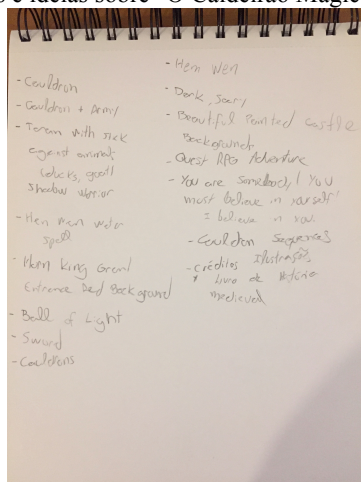 e ideias sobre "O Caldeirão Mágic
- Cauldron
- Cauldron + Army
- Taran with stick
against animals
(ducks, goat)
Shadow warrior
- Hen wen water
spell
- Horn King Grand
Entrance Red Background
- Ball of Light
- Sword
- Cauldrons
- Hen Wen
- Dark, Scary
- Beautiful Painted Castle
Backgrounds
- Quest RPG Adventure
- You are Somebody! You
must believe in yourself!
I believe in you.
- Cauldron Sequences
- Créditos Ilustrações
Livro de
medieval